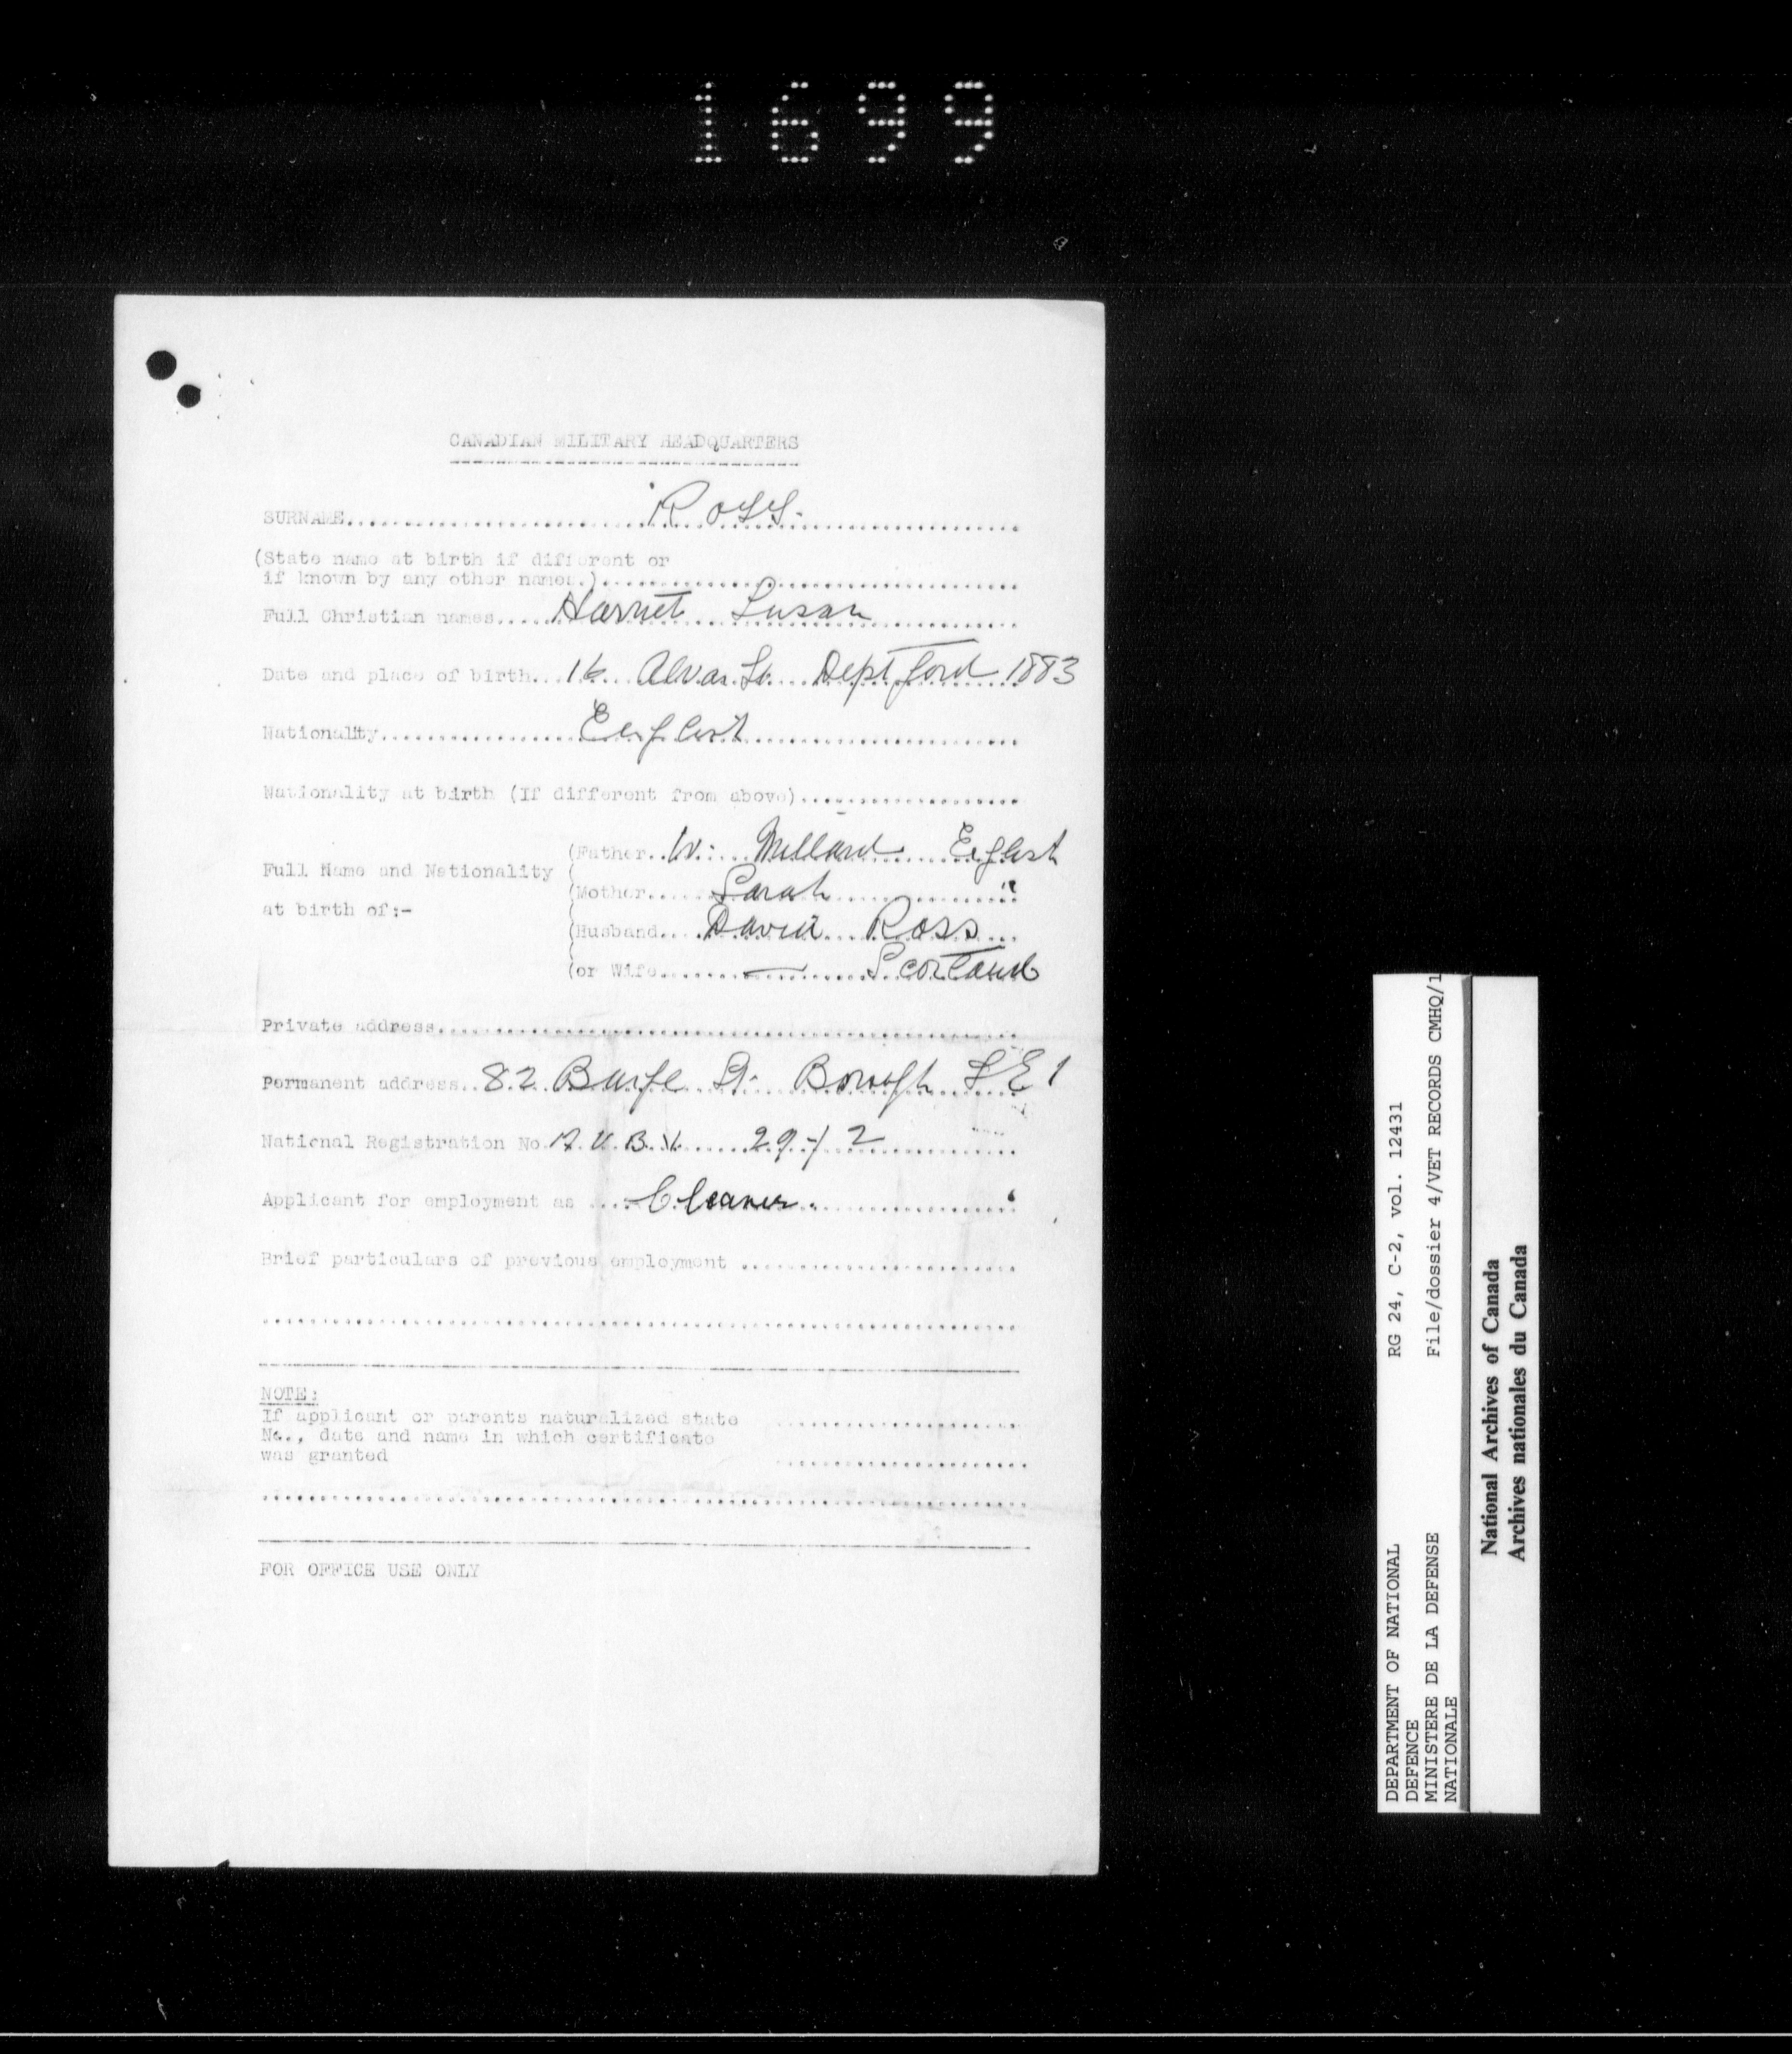 1699
CANADIAN MILITARY HEADQUARTERS
SURNAME Ross.
(State name at birth if different or
if known by any other names.)
Full Christian names Harriet Susan
Date and place of birth 16 Alvar St. Deptford 1883
Nationality English
Nationality at birth (If different from above)
(Father W. Millard English
Full Name and Nationality (
(Mother Sarah "
at birth of:- (
(Husband David Ross
(or Wife — Scotland
Private address
Permanent address 82 St. Borough S E 1
National Registration No. 29-/ 2
Applicant for employment as Cleaner.
Brief particulars of previous employment
NOTE:
If applicant or parents naturalized state
No., date and name in which certificate
was granted
FOR OFFICE USE ONLY
DEPARTMENT OF NATIONAL RG 24, C-2, vol. 12431
DEFENCE
MINISTERE DE LA DEFENSE File/dossier 4/VET RECORDS CMHQ/1
NATIONALE
National Archives of Canada
Archives nationales du Canada